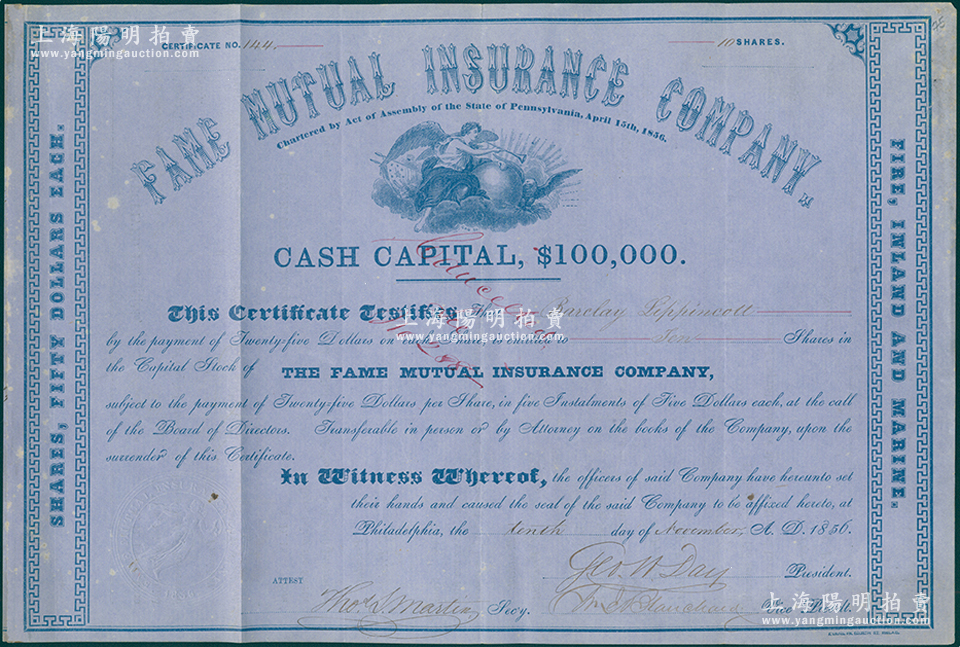 上海陽明拍賣
www.yangmingauction.com
上海陽明拍賣
www.yangmingauction.com
CERTIFICATE NO. 144
10 SHARES.
FAME MUTUAL INSURANCE COMPANY.
Chartered by Act of Assembly of the State of Pennsylvania, April 15th, 1856.
SHARES, FIFTY DOLLARS EACH.
FIRE, INLAND AND MARINE.
CASH CAPITAL, $100,000.
Cancelled
This Certificate Testifies, Barclay Lippincott
上海陽明拍賣
www.yangmingauction.com
by the payment of Twenty-five Dollars on Ten Shares in
the Capital Stock of THE FAME MUTUAL INSURANCE COMPANY,
subject to the payment of Twenty-five Dollars per Share, in five Instalments of Five Dollars each, at the call
of the Board of Directors. Transferable in person or by Attorney on the books of the Company, upon the
surrender of this Certificate.
In Witness Whereof, the officers of said Company have hereunto set
their hands and caused the seal of the said Company to be affixed hereto, at
Philadelphia, the tenth day of November, A. D. 1856.
Geo. W. Day President.
ATTEST
Thos. S. Martin Secy. Wm. Blanchard Vice Prest.
上海陽明拍賣
www.yangmingauction.com
上海陽明拍賣
www.yangmingauction.com